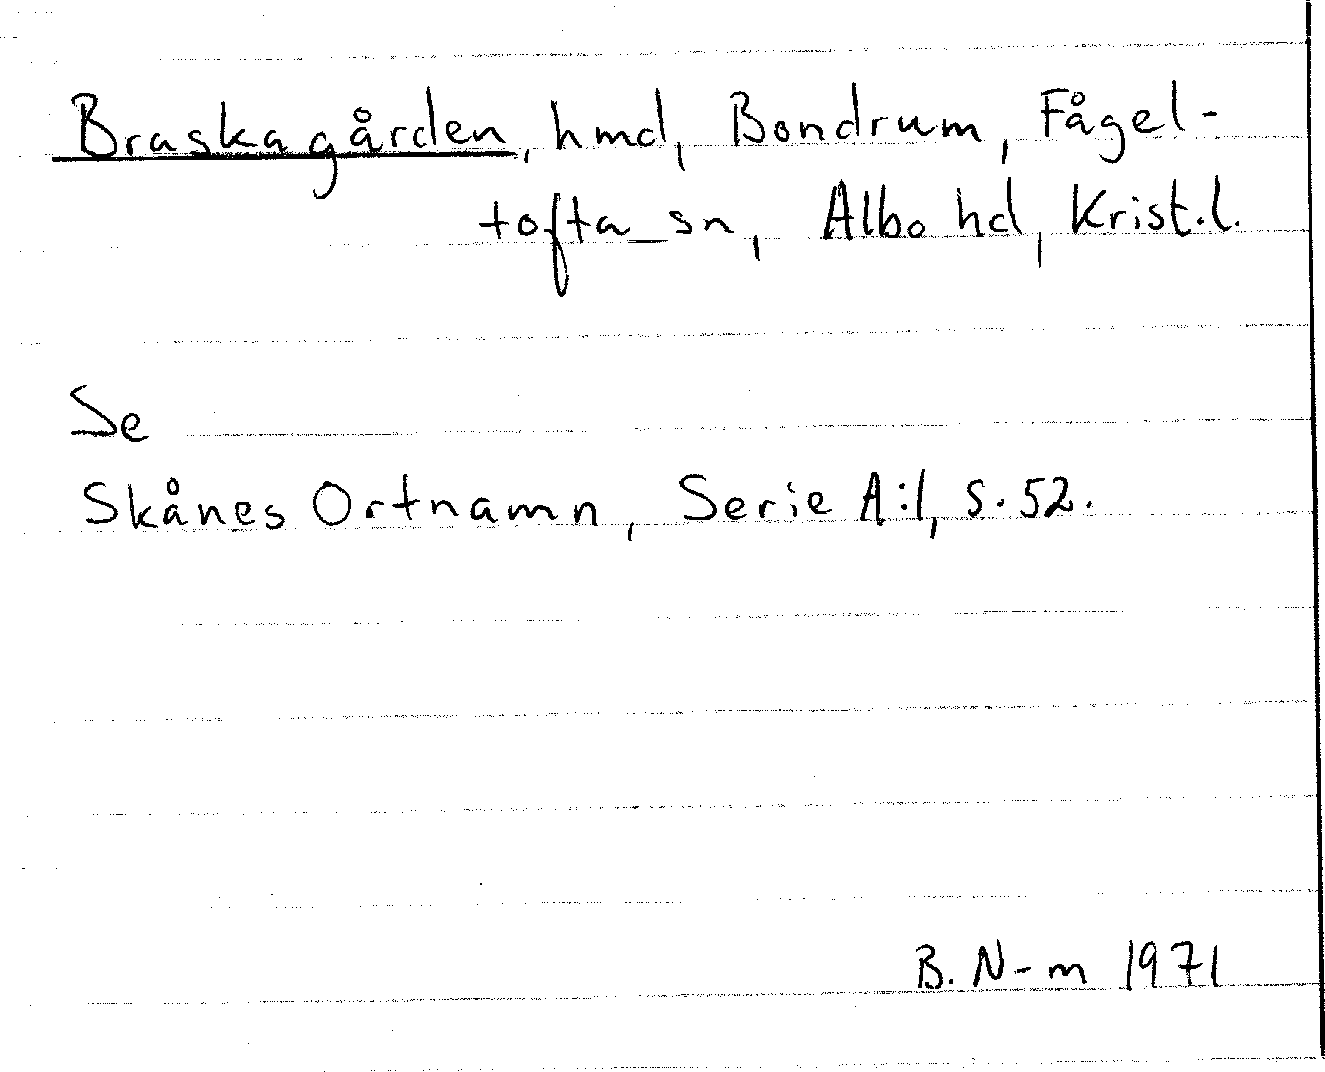 Braskagården, hmd, Bondrum, Fågel-
tofta sn, Albo hd, Krist.l.
Se
Skånes Ortnamn, Serie A:1, s.52.
B. N-m 1971